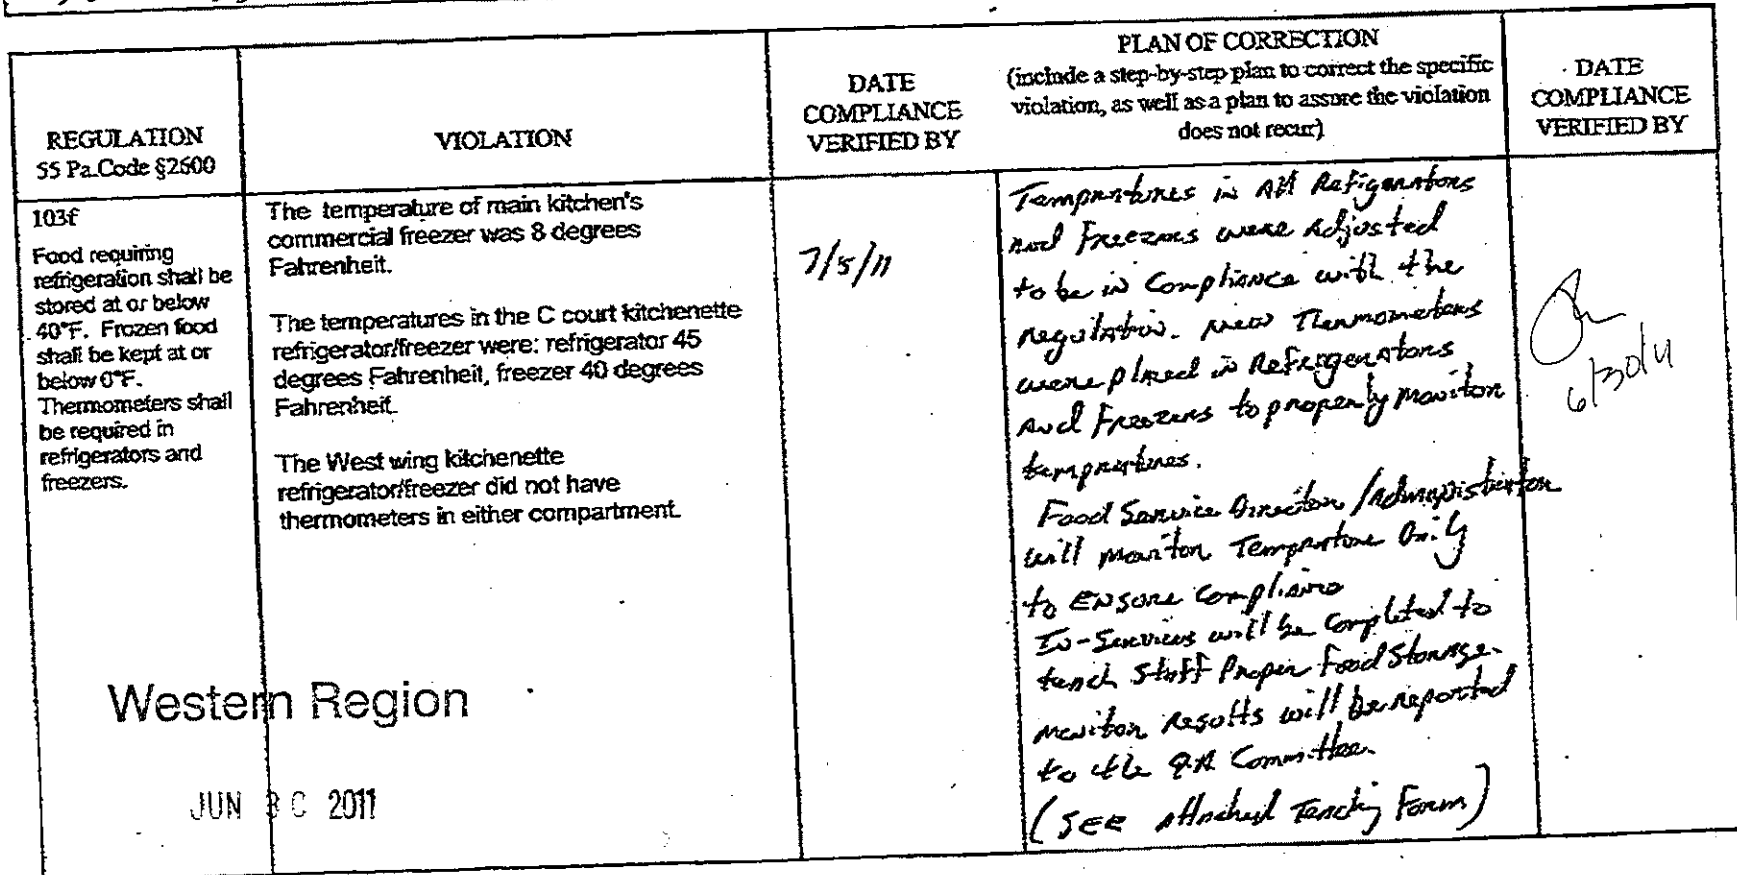 REGULATION
55 Pa.Code §2600
VIOLATION
DATE
COMPLIANCE
VERIFIED BY
PLAN OF CORRECTION
(include a step-by-step plan to correct the specific
violation, as well as a plan to assure the violation
does not recur)
DATE
COMPLIANCE
VERIFIED BY
103f
Food requiring
refrigeration shall be
stored at or below
40°F. Frozen food
shall be kept at or
below 0°F.
Thermometers shall
be required in
refrigerators and
freezers.
The temperature of main kitchen's
commercial freezer was 8 degrees
Fahrenheit.
The temperatures in the C court kitchenette
refrigerator/freezer were: refrigerator 45
degrees Fahrenheit, freezer 40 degrees
Fahrenheit.
The West wing kitchenette
refrigerator/freezer did not have
thermometers in either compartment.
7/5/11
Tempratures in All Refigerators
and Freezers were Adjusted
to be in Compliance with the
regulation. New Thermometers
were placed in Refrigerators
and Freezers to properly monitor
tempratures.
Food Service Director/Administrator
will monitor Temprature Daily
to ENSURE Compliance
In-Services will be Completed to
teach Staff Proper Food Storage.
monitor Results will be reported
to the QA Committee.
(SEE Attached Form)
6/30/11
Western Region
JUN 30 2011